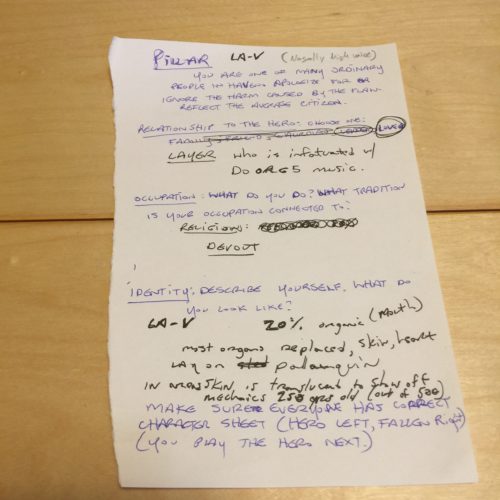 PILLAR LA-V (Nasally high voice)
YOU ARE ONE OF MANY ORDINARY
PEOPLE IN HAVEN. APOLOGIZE FOR OR
IGNORE THE HARM CAUSED BY THE FLAW.
REFLECT THE AVERAGE CITIZEN.
RELATIONSHIP TO THE HERO: CHOOSE ONE:
FAMILY, FRIEND LOVER
LAYER who is infatuated w/
Do ORG5 music.
OCCUPATION: WHAT DO YOU DO? WHAT TRADITION
IS YOUR OCCUPATION CONNECTED TO?
RELIGION:
DEVOUT
IDENTITY: DESCRIBE YOURSELF. WHAT DO
YOU LOOK LIKE?
LA-V 20% organic (Mouth)
most organs replaced, skin, heart
Lay on palanquin
skin is translucent to show off
mechanics 250 yrs old (out of 500)
MAKE SURE EVERYONE HAS CORRECT
CHARACTER SHEET (HERO LEFT, FALLEN Right)
(YOU PLAY THE HERO NEXT)